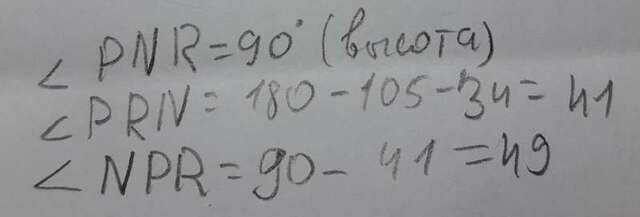 ∠ PNR = 90° (высота)
∠ PRN = 180 - 105 - 34 = 41
∠ NPR = 90 - 41 = 49